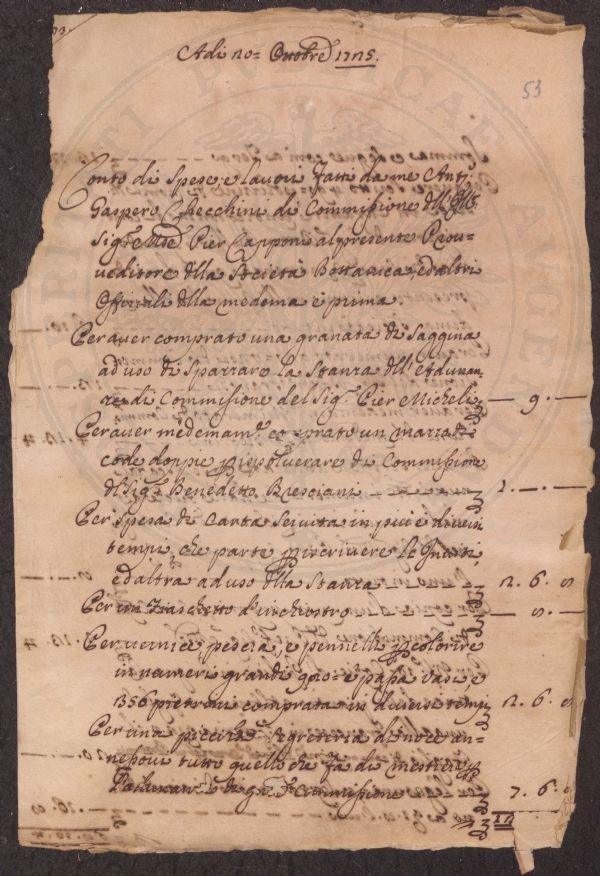 Adi 20= Ottobre 1725.
53
Conto di Spese, e lavori fatti da me Ant:
Gaspero Checchini di Commissione dell Ill:
Sig:e Pier Capponi al presente Prou=
ueditore della Società Bottanica, ed altri
Offiziali della medema è prima.
Per auer comprato una granata di Saggina
ad uso di Spazzare la Stanza dell'Adunan=
ze di Commissione del Sig:r Pier Micheli — 9. —
Per auer medemam:e comprato un mazzo di
code doppie p ispoluerare di Commissione
d Sig:r Benedetto Bresciani — 2. — . —
Per Spesa di Carta Seruita in più e diuersi
tempi, che parte p iscriuere le
ed altra ad uso della Stanza 2. 6. 8
Per un fiaschetto d'inchiostro — 8. —
Per uernice, e pennelli p colorire
in numeri grandi vasi, e
1356 comprata in diuersi tempi 2. 6. 8
Per una piccola Segreteria di noce an=
nessoui tutto quello che fà di mestiero p
commissione 7. 6. 8